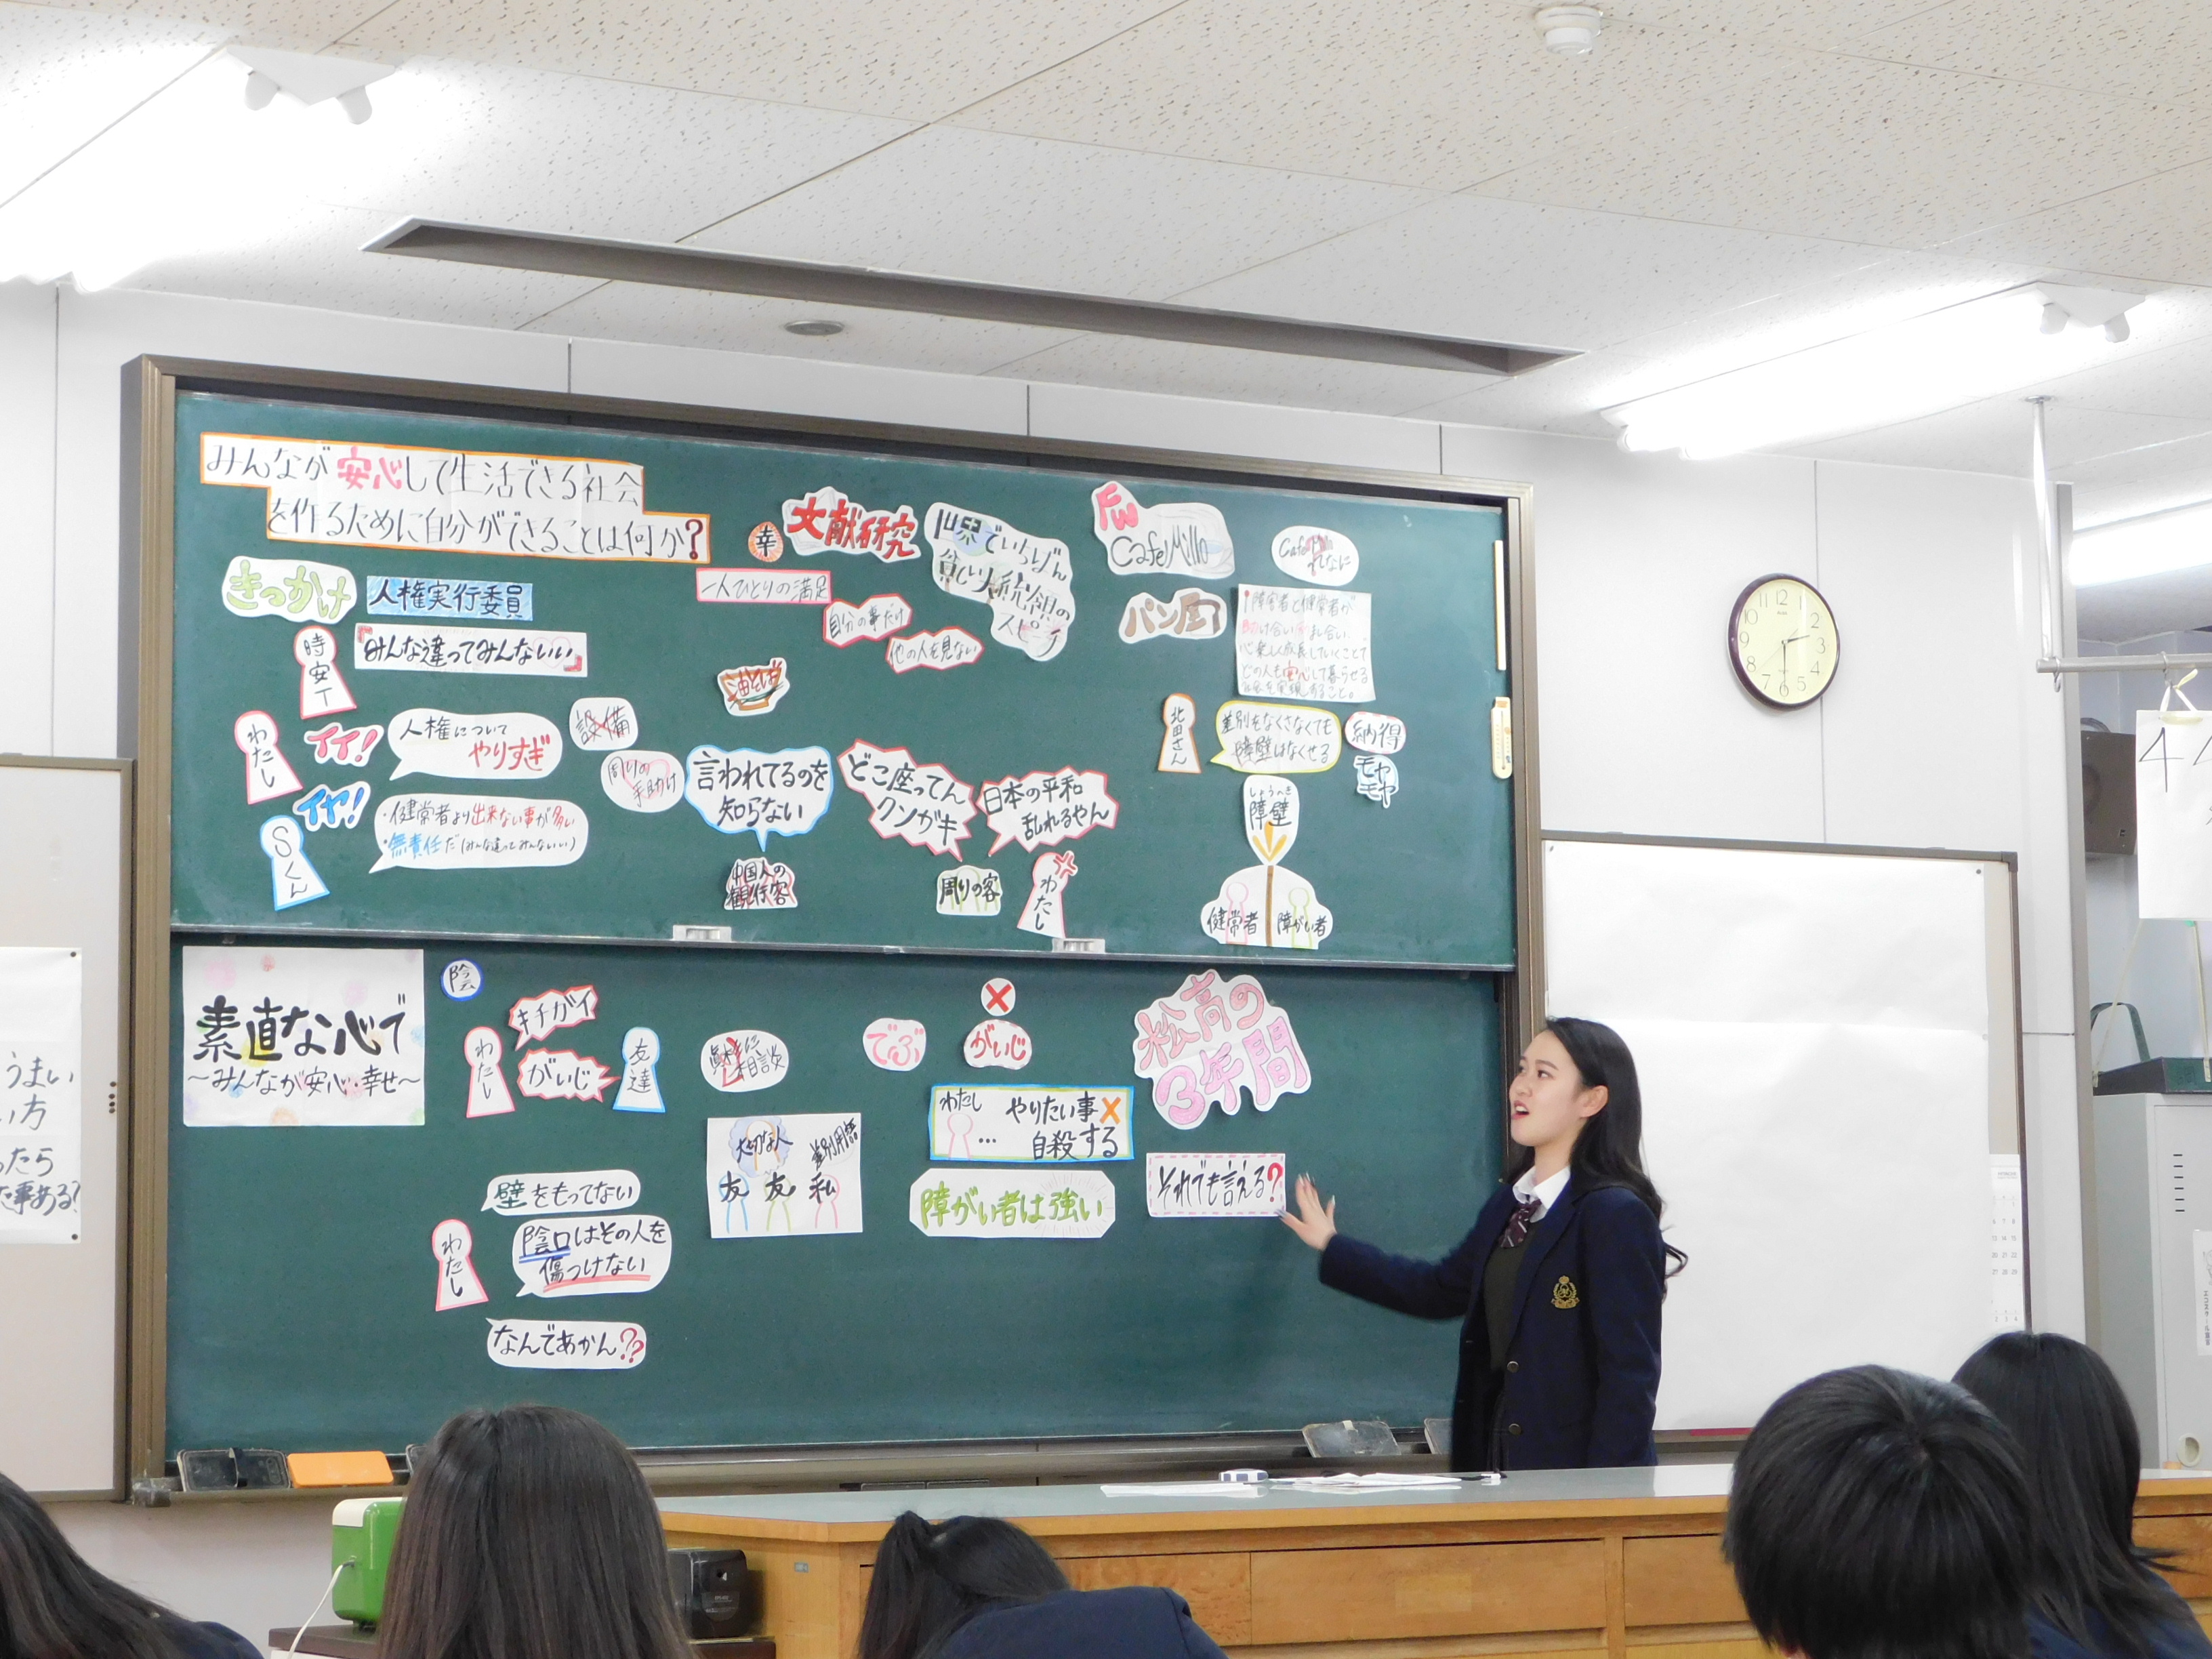 みんなが安心して生活できる社会
を作るために自分ができることは何か?
きっかけ
人権実行委員
時安T
「みんな違ってみんないい」
わたし
イイ!
人権について
やりすぎ
イヤ!
Sくん
・健常者より出来ない事が多い
・無責任だ(みんな違ってみんないい)
設備
周りの
手助け
幸
文献研究
一人ひとりの満足
自分の事だけ
他の人を見ない
世界でいちばん
貧しい大統領の
スピーチ
油そば
言われてるのを
知らない
中国人の
観光客
どこ座ってん
クンガキ
周りの客
日本の平和
乱れるやん
わたし
FW
CafeMillo
パン
障害者と健常者が
助け合い
心楽しく成長していくことで
どの人も安心して暮らせる
社会を実現すること。
北田さん
差別をなくさなくても
障壁はなくせる
納得
モヤ
モヤ
しょうへき
障壁
健常者
障がい者
素直な心で
~みんなが安心・幸せ~
陰
わたし
キチガイ
がいじ
友達
相談
大切な人
差別用語
友
友
私
でぶ
がいじ
わたし
...
やりたい事×
自殺する
障がい者は強い
松高の
3年間
それでも言える?
わたし
壁をもってない
陰口はその人を
傷つけない
なんであかん??
うまい
い方
ったら
た事ある?
12
1
2
3
4
5
6
7
8
9
10
11